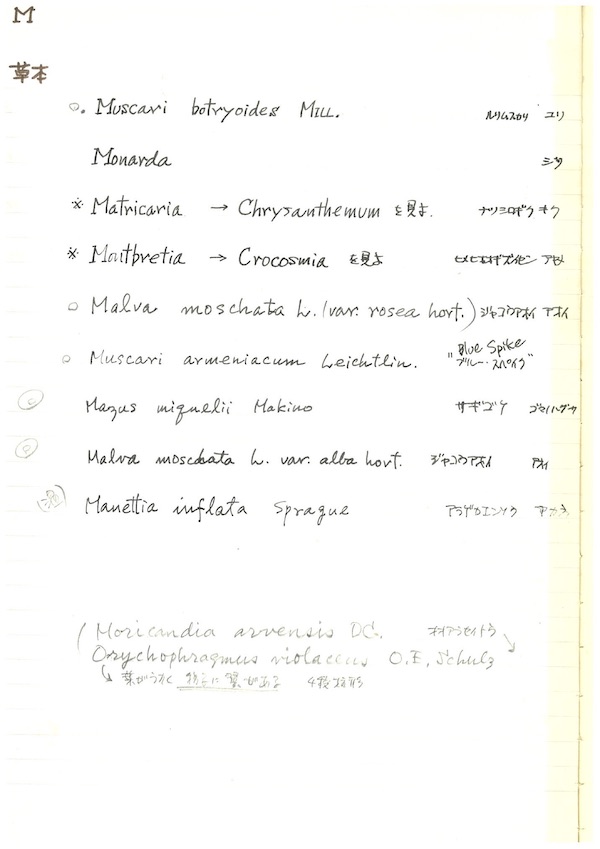 M
草本
○. Muscari botryoides MILL. ルリムスカリ ユリ
Monarda シソ
※ Matricaria → Chrysanthemum を見よ. ナツシロギク キク
※ Montbretia → Crocosmia を見よ ヒメヒオオギズイセン アヤメ
○ Malva moschata L. (var. rosea hort.) ジャコウアオイ アオイ
○ Muscari armeniacum Leichtlin. "Blue Spike
ブルー・スパイク"
Mazus miquelii Makino サギゴケ ゴマノハグサ
Malva moschata L. var. alba hort. ジャコウアオイ アオイ
(温) Manettia inflata Sprague アラゲカエンソウ アカネ
(Moricandia arvensis DC. オオアラセイトウ
Orychophragmus violaceus O.E. Schulz
葉がうすく 4稜 形